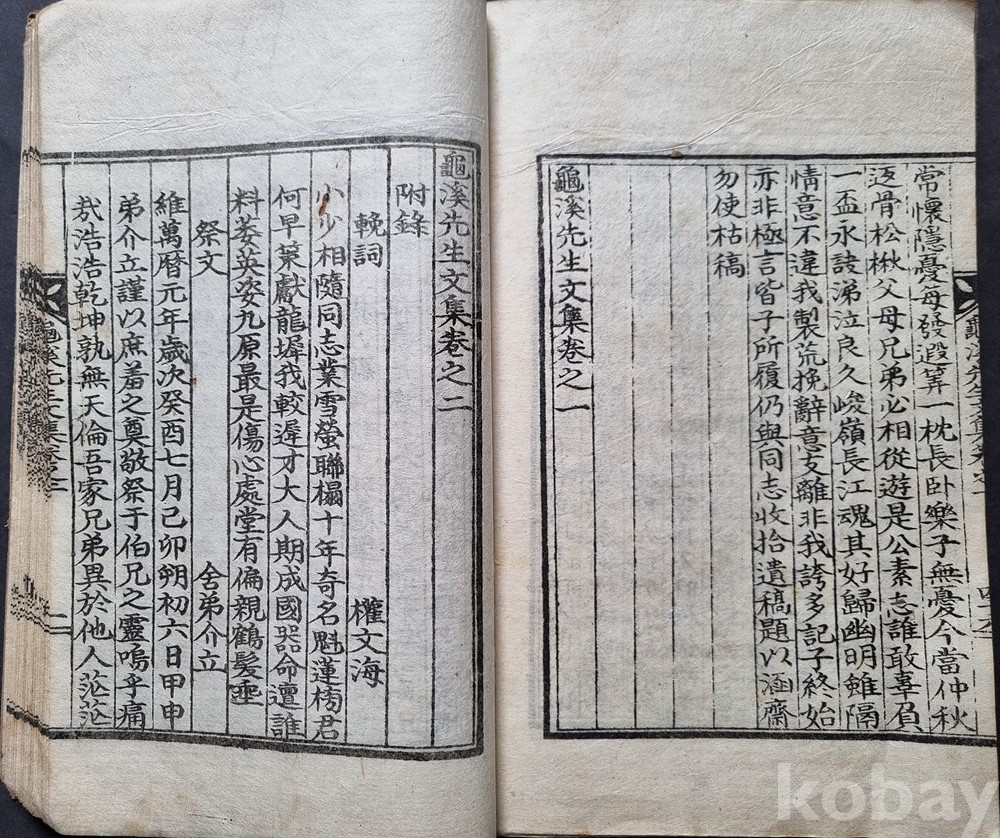 常懷隱憂每發遐筭一枕長卧樂子無憂今當仲秋
返骨松楸父母兄弟必相從遊是公素志誰敢辜負
一盃永訣涕泣良久峻嶺長江魂其好歸幽明雖隔
情意不違我製荒挽辭意支離非我誇多記子終始
亦非極言皆子所履仍與同志收拾遺稿題以涵齋
勿使枯稿
龜溪先生文集卷之一
龜溪先生文集卷之二
附錄
輓詞
權文海
少少相隨同志業雪螢聯榻十年奇名魁蓮榜君
何早策獻龍墀我較遲才大人期成國器命邅誰
料萎英姿九原最是傷心處堂有偏親鶴髮垂
祭文
舍弟介立
維萬曆元年歲次癸酉七月己卯朔初六日甲申
弟介立謹以庶羞之奠敬祭于伯兄之靈嗚乎痛
哉浩浩乾坤孰無天倫吾家兄弟異於他人茫茫
龜溪先生文集卷之二
kobay